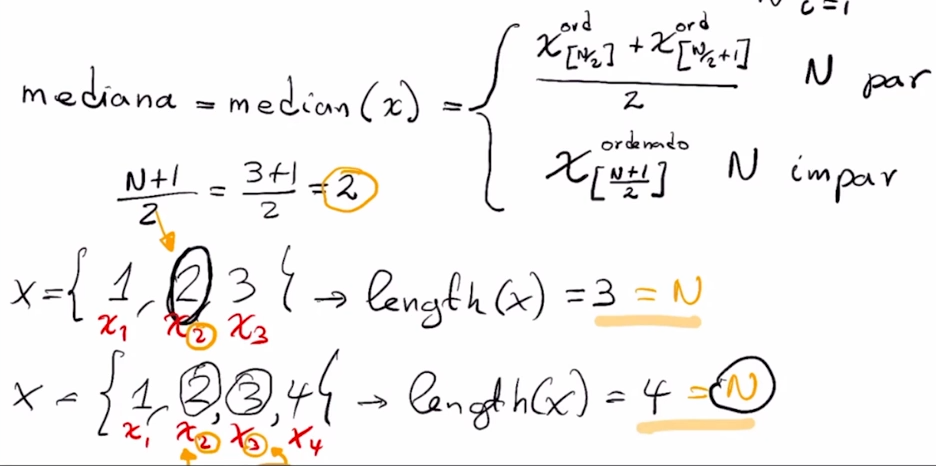 i=1
mediana = median(x) = { (x^ord_[N/2] + x^ord_[N/2+1]) / 2   N par
x^ordenado_[(N+1)/2]   N impar
(N+1)/2 = (3+1)/2 = 2
X = { 1, 2, 3 } → length(x) = 3 = N
x1 x2 x3
X = { 1, 2, 3, 4 } → length(x) = 4 = N
x1 x2 x3 x4